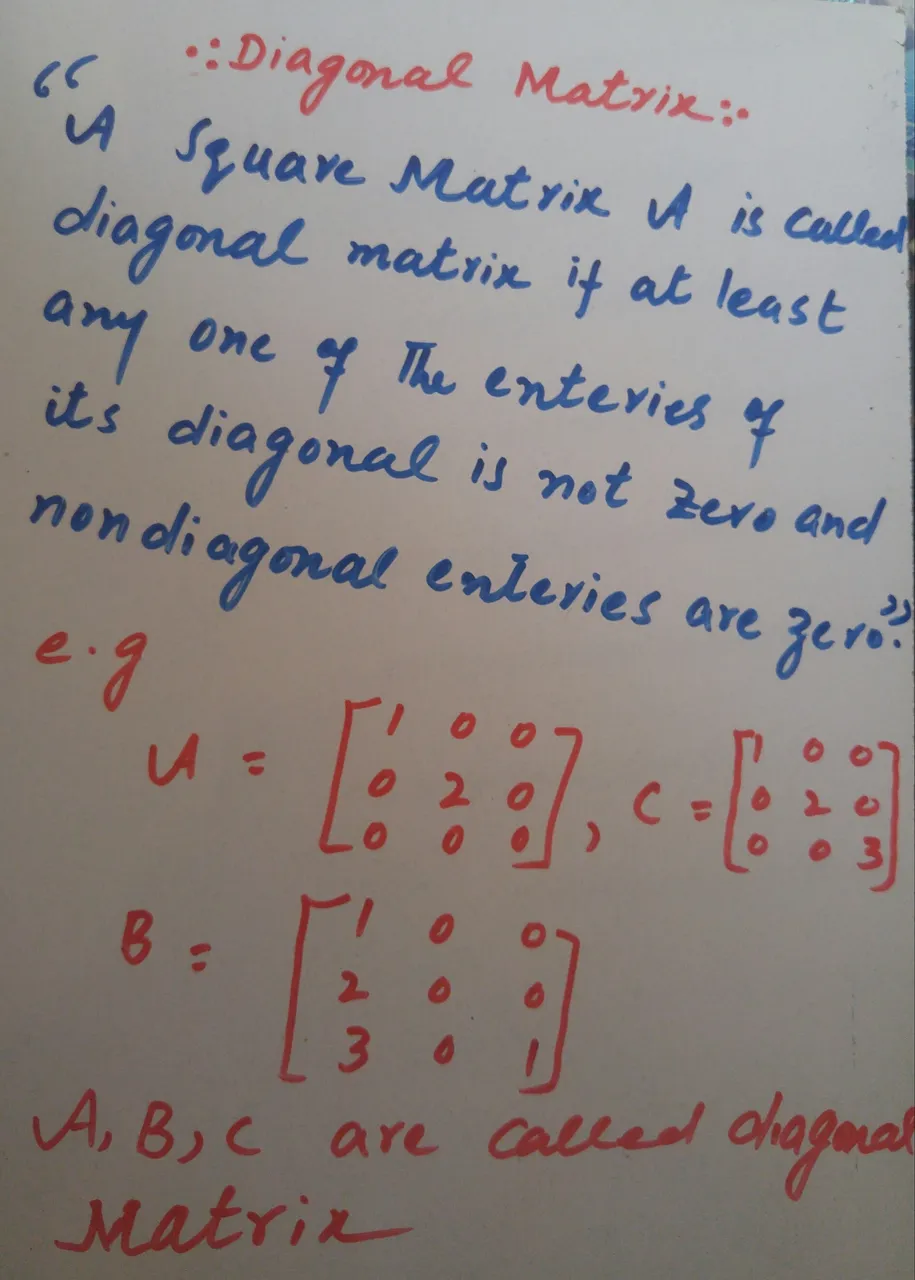 ∴Diagonal Matrix:·
“A Square Matrix A is called
diagonal matrix if at least
any one of The enteries of
its diagonal is not zero and
nondiagonal enteries are zero.”
e.g
A = [1 0 0 0 2 0 0 0 0], C = [1 0 0 0 2 0 0 0 3]
B = [1 0 0 2 0 0 3 0 1]
A, B, C are called diagonal
Matrix